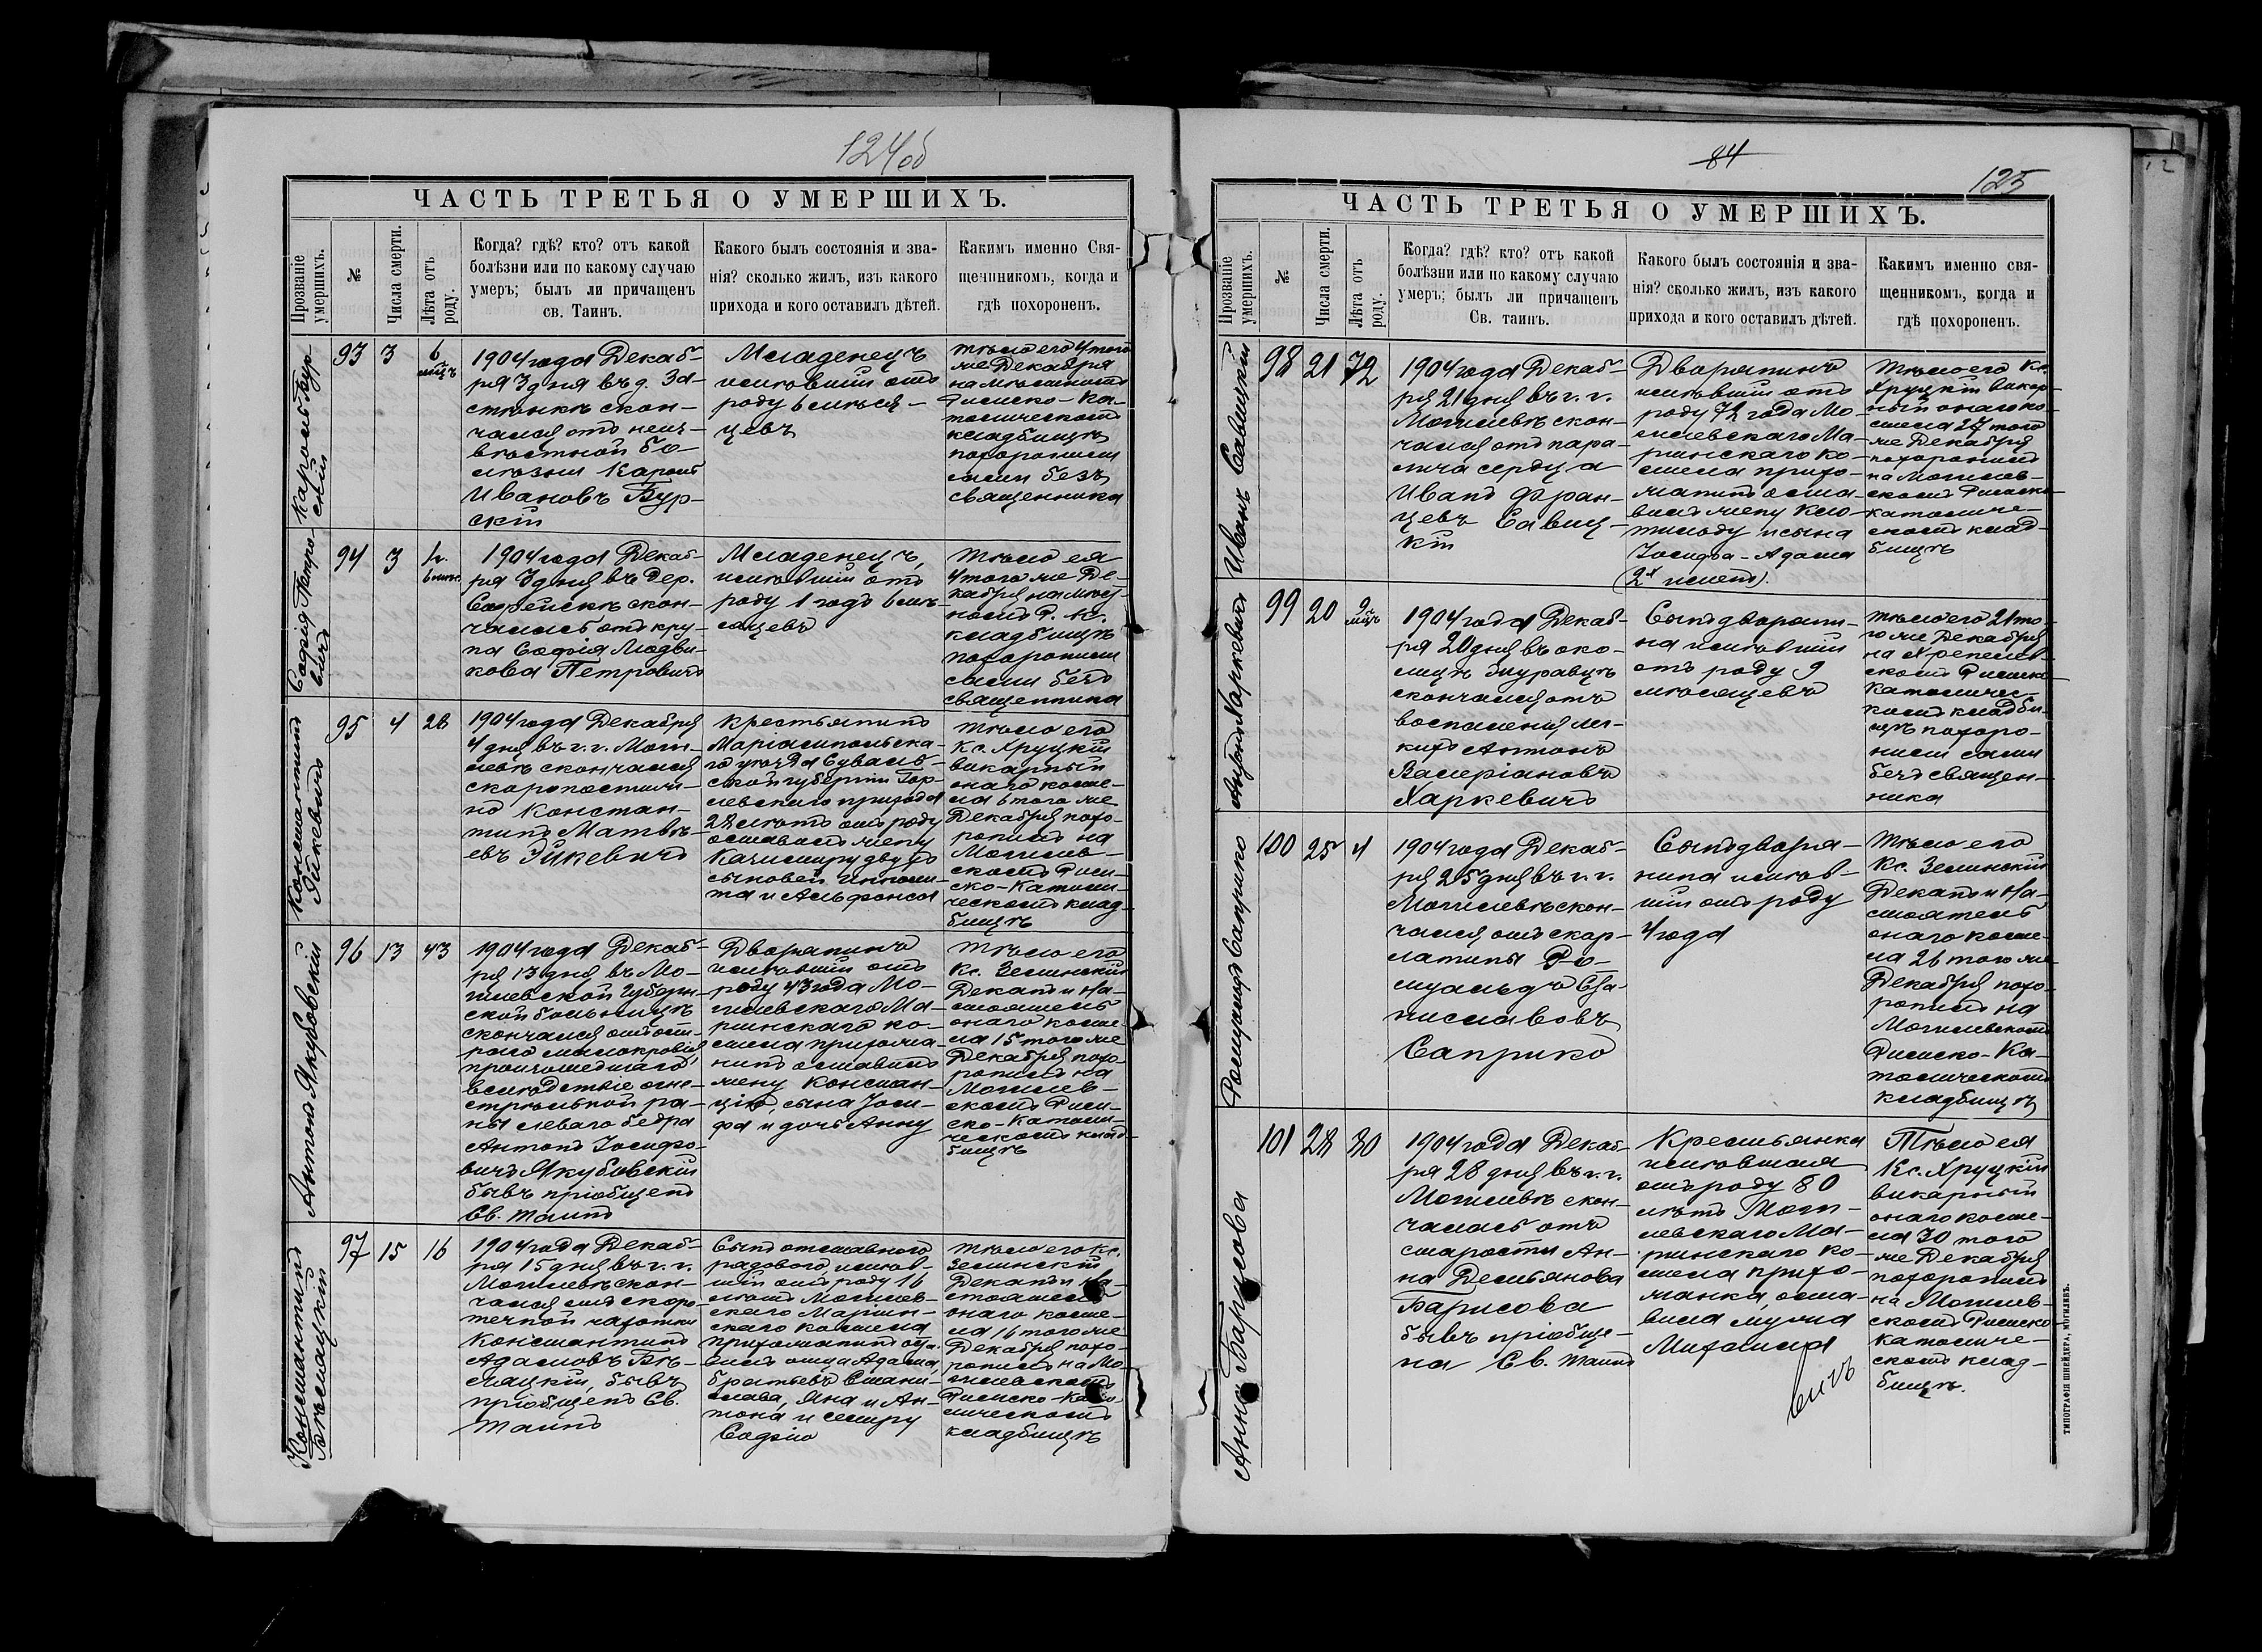 124об
ЧАСТЬ ТРЕТЬЯ О УМЕРШИХЪ.
Прозваніе умершихъ.
№
Числа смерти.
Лѣта отъ роду.
Когда? гдѣ? кто? отъ какой
болѣзни или по какому случаю
умеръ; былъ ли причащенъ
св. Таинъ.
Какого былъ состоянія и зва-
нія? сколько жилъ, изъ какого
прихода и кого оставилъ дѣтей.
Какимъ именно Свя-
щенникомъ, когда и
гдѣ похороненъ.
Кароль Бур-
скій
93
3
6
мѣц
1904 года Декаб-
ря 3 дня въ д. За-
стѣнкѣ скон-
чался отъ неиз-
вѣстной бо-
лѣзни Кароль
Ивановъ Бур-
скій
Младенецъ
имѣвшій отъ
роду 6 мѣся-
цевъ
Тѣло его 4 того
же Декабря
на мѣстномъ
Римско-Ка-
толическомъ
кладбищѣ
похоронили
сами безъ
священника
Софія Петро-
вичъ
94
3
1 г.
6 мѣс
1904 года Декаб-
ря 3 дня въ дер.
скон-
чалась отъ кру-
па Софія Людви-
кова Петровичъ
Младенецъ,
имѣвшій отъ
роду 1 годъ 6 мѣ-
сяцевъ
Тѣло ея
4 того же Де-
кабря на мѣст-
номъ Р. К.
кладбищѣ
похоронили
сами безъ
священника
Константинъ
Эйкевичъ
95
4
28
1904 года Декабря
4 дня въ г. г. Моги-
левѣ скончался
скоропостиж-
но Констан-
тинъ Матвѣ-
евъ Эйкевичъ
Крестьянинъ
Маріампольска-
го уѣзда Суваль-
ской губерніи
прихода
28 лѣтъ отъ роду
оставилъ жену
Казимиру двухъ
сыновей
та и Альфонса
Тѣло его
Кс. Хруцкій
викарный
онаго косте-
ла 6 того же
Декабря похо-
ронилъ на
Могилев-
скомъ Рим-
ско-Католи-
ческомъ клад-
бищѣ
Антонъ Якубовскій
96
13
43
1904 года Декаб-
ря 13 дня въ Мо-
гилевской Губерн-
ской больницѣ
скончался отъ ост-
раго малокровія,
происшедшаго
вслѣдствіе огне-
стрѣльной ра-
ны лѣваго бедра
Антонъ Іосифо-
вичъ Якубовскій
бывъ пріобщенъ
Св. Таинъ
Дворянинъ
имѣвшій отъ
роду 43 года Мо-
гилевскаго Ма-
ріинскаго ко-
стела прихожа-
нинъ оставилъ
жену Констан-
цію, сына Іоси-
фа и дочь Анну
Тѣло его
Кс. Зелинскій
Деканъ и На-
стоятель
онаго косте-
ла 15 того же
Декабря похо-
ронилъ на
Могилев-
скомъ Рим-
ско-Католи-
ческомъ клад-
бищѣ
Константинъ
97
15
16
1904 года Декаб-
ря 15 дня въ г. г.
Могилевѣ скон-
чался отъ скоро-
течной чахотки
Константинъ
Адамовъ Бѣ-
лацкій, бывъ
пріобщенъ Св.
Таинъ
Сынъ отставного
рядового имѣв-
шій отъ роду 16
лѣтъ Могилев-
скаго Маріин-
скаго костела
прихожанинъ оста-
вилъ отца Адама,
братьевъ Стани-
слава, Яна и Ан-
тона и сестру
Софію
Тѣло его Кс.
Зелинскій
Деканъ и На-
стоятель
онаго косте-
ла 16 того же
Декабря похо-
ронилъ на Мо-
гилевскомъ
Римско-Като-
лическомъ
кладбищѣ
84
125
ЧАСТЬ ТРЕТЬЯ О УМЕРШИХЪ.
Прозваніе умершихъ.
№
Числа смерти.
Лѣта отъ роду.
Когда? гдѣ? кто? отъ какой
болѣзни или по какому случаю
умеръ; былъ ли причащенъ
Св. таинъ.
Какого былъ состоянія и зва-
нія? сколько жилъ, изъ какого
прихода и кого оставилъ дѣтей.
Какимъ именно свя-
щенникомъ, когда и
гдѣ похороненъ.
Иванъ Савицкій
98
21
72
1904 года Декаб-
ря 21 дня въ г. г.
Могилевѣ скон-
чался отъ пара-
лича сердца
Иванъ Фран-
цевъ Савиц-
кій
Дворянинъ
имѣвшій отъ
роду 72 года Мо-
гилевскаго Ма-
ріинскаго ко-
стела прихо-
жанинъ оста-
вилъ жену Кло-
тильду и сына
Іосифа-Адама
(2х именъ).
Тѣло его Кс.
Хруцкій викар-
ный онаго ко-
стела 27 того
же Декабря
похоронилъ
на Могилев-
скомъ Римско-
католиче-
скомъ клад-
бищѣ
Антонъ Харкевичъ
99
20
9
мѣц
1904 года Декаб-
ря 20 дня въ око-
лицѣ Журавцѣ
скончался отъ
воспаленія лег-
кихъ Антонъ
Валеріановъ
Харкевичъ
Сынъ дворяни-
на имѣвшій
отъ роду 9
мѣсяцевъ
Тѣло его 21 то-
го же Декабря
на
скомъ Римско-
католичес-
комъ кладби-
щѣ похоро-
нили сами
безъ священ-
ника
Ромуальдъ Саприко
100
25
4
1904 года Декаб-
ря 25 дня въ г. г.
Могилевѣ скон-
чался отъ скар-
латины Ро-
муальдъ Ста-
ниславовъ
Саприко
Сынъ дворя-
нина имѣв-
шій отъ роду
4 года
Тѣло его
Кс. Зелинскій
Деканъ и На-
стоятель
онаго косте-
ла 26 того же
Декабря похо-
ронилъ на
Могилевскомъ
Римско-Ка-
толическомъ
кладбищѣ
Анна Барисова
101
28
80
1904 года Декаб-
ря 28 дня въ г. г.
Могилевѣ скон-
чалась отъ
старости Ан-
на Демьянова
Барисова
бывъ пріобще-
на Св. Таинъ
Крестьянка
имѣвшая
отъ роду 80
лѣтъ Моги-
левскаго Ма-
ріинскаго ко-
стела прихо-
жанка, оста-
вила мужа
Михаила
Тѣло ея
Кс. Хруцкій
викарный
онаго косте-
ла 30 того
же Декабря
похоронилъ
на Могилев-
скомъ Римско-
католиче-
скомъ клад-
бищѣ.
ТИПОГРАФІЯ ШНЕЙДЕРА, МОГИЛЕВЪ.